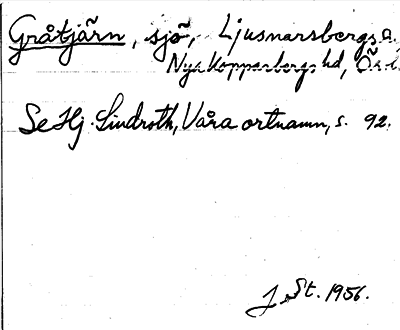 Gråtjärn, sjö, Ljusnarsbergs
Nya Kopparbergs hd, Ö.
Se Hj. Lindroth, Våra ortnamn, s. 92.
J. St. 1956.